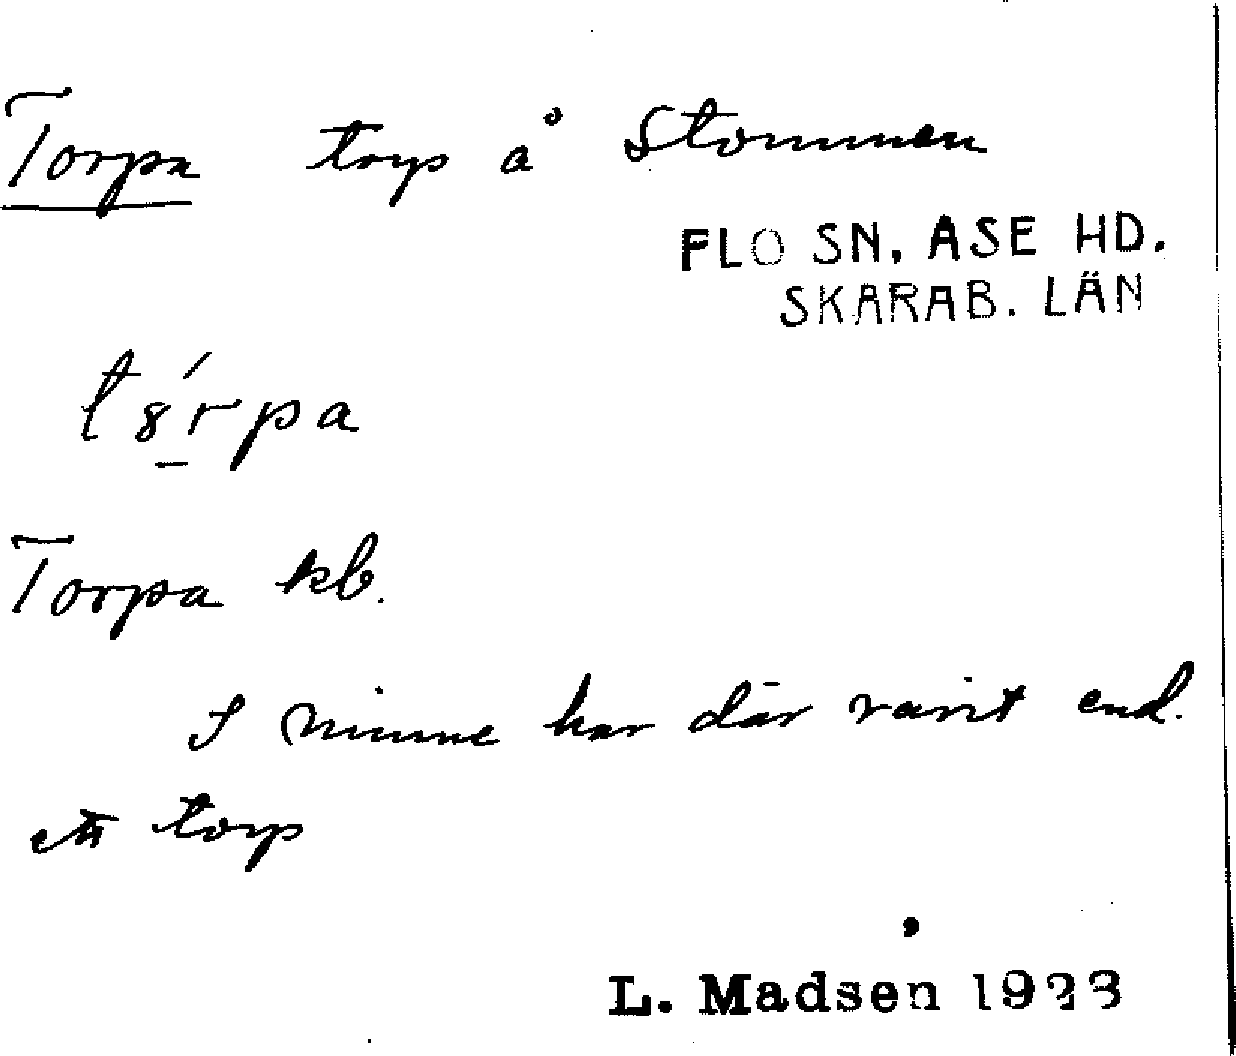 Torpa torp å Stommen
FLO SN. ÅSE HD.
SKARAB. LÄN
Torpa kb.
I minne har där varit end.
ett torp
L. Madsen